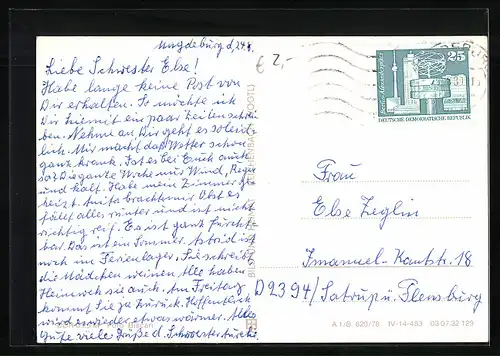 Magdeburg d. 24.8.
€ 2,-
Liebe Schwester Else!
Habe lange keine Post von
Dir erhalten. So möchte ich
Dir hiermit ein paar Zeilen schrei
ben. Nehme an, Dir geht es so leid-
lich. Mir macht das Wetter schon
ganz krank. Ist es bei Euch auch
so? Die ganze Woche nur Wind, Regen
und kalt. Habe mein Zimmer ge-
heizt. Anita brachte mir Obst es
fällt alles runter und ist nicht
richtig reif. Es ist ganz furcht
bar. Das ist ein Sommer. Astrid ist
noch im Ferienlager. Sie schreibt
die Mädchen weinen alle haben
Heimweh sie auch. Am Freitag
kommt Sie ja zurück. Hoffentlich
wird es wieder etwas wärmer. Alles
Gute viele Grüße d. Schwester
25
Berlin, Alexanderplatz
DEUTSCHE DEMOKRATISCHE REPUBLIK
Frau
Else Zeglin
Imanuel-Kantstr. 18
D2394/Satrup u. Flensburg
A 1/B 620/78 IV-14-483 03 07 32 129